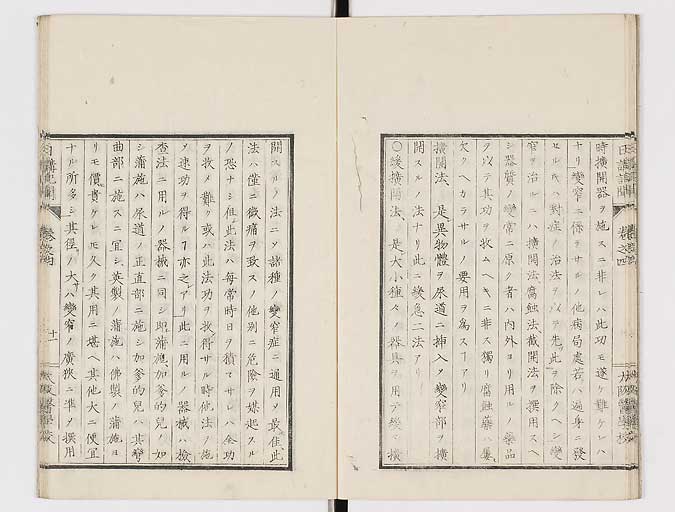 時擴開器ヲ施スニ非レハ此功モ遂ケ難ケレハ
ナリ變窄ニ係ラサルノ他病局處若ハ遍身ニ發
セル片ハ對症ノ治法ヲ以テ先ツ此ヲ除クヘシ變
窄ヲ治ルニハ擴開法腐蝕法截開法ヲ撰用スヘ
シ器質ノ變常ニ原ク者ハ內外ヨリ用ルノ藥品
ヲ以テ其功ヲ收ムヘキニ非ス獨リ腐蝕藥ハ屢
欠クヘカラサルノ要用ヲ為スヿアリ
擴開法、是異物體ヲ尿道ニ挿入シ變窄部ヲ擴
開スルノ法ナリ此ニ緩急二法アリ
〇緩擴開法、是大小種々ノ器具ヲ用テ緩々擴
開スルノ法ニシテ諸種ノ變窄症ニ通用シ最佳此
法ハ僅ニ微痛ヲ致スノ他別ニ危險ヲ媒起スル
ノ恐ナシ但此法ハ每常時日ヲ積マサレハ全功
ヲ收メ難ク或ハ此法功ヲ收得サル時他法ヲ施
シ速功ヲ得ルヿ亦之アリ此ニ用ルノ器械ハ撿
查法ニ用ルノ器械ニ同シ即蒲施加爹的兒ノ如
シ蒲施ハ尿道ノ正直部ニ施シ加爹的兒ハ其彎
曲部ニ施スニ宜シ英製ノ蒲施ハ佛製ノ蒲施ヨ
リモ價貴ケレ𪜈久ク其用ニ堪ヘ其他大ニ便宜
ナル所多シ其徑ノ大サハ變窄ノ廣狹ニ準メ撰用
日講記聞
卷之四
十一
大阪醫學校